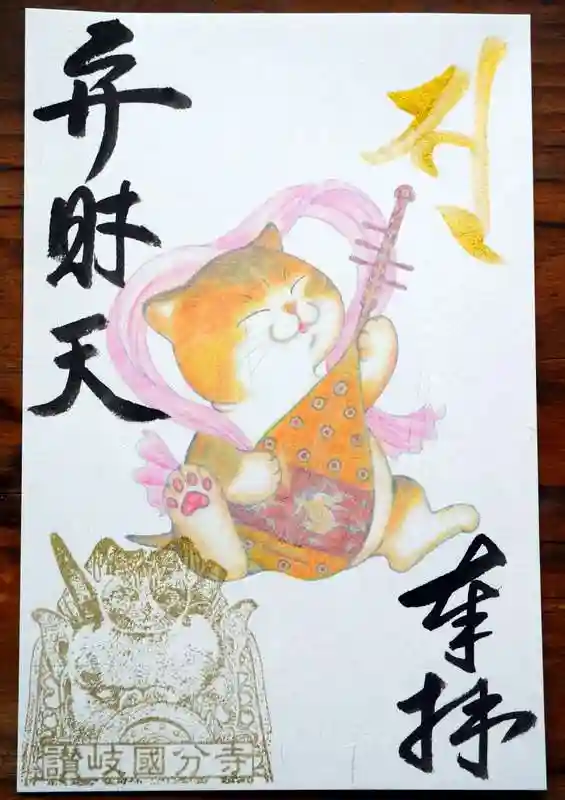 奉拝
弁財天
讃岐國分寺